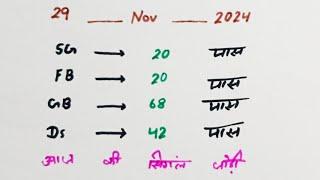 29 Nov 2024
SG → 20 पास
FB → 20 पास
GB → 68 पास
DS → 42 पास
आज की सिंगल जोड़ी